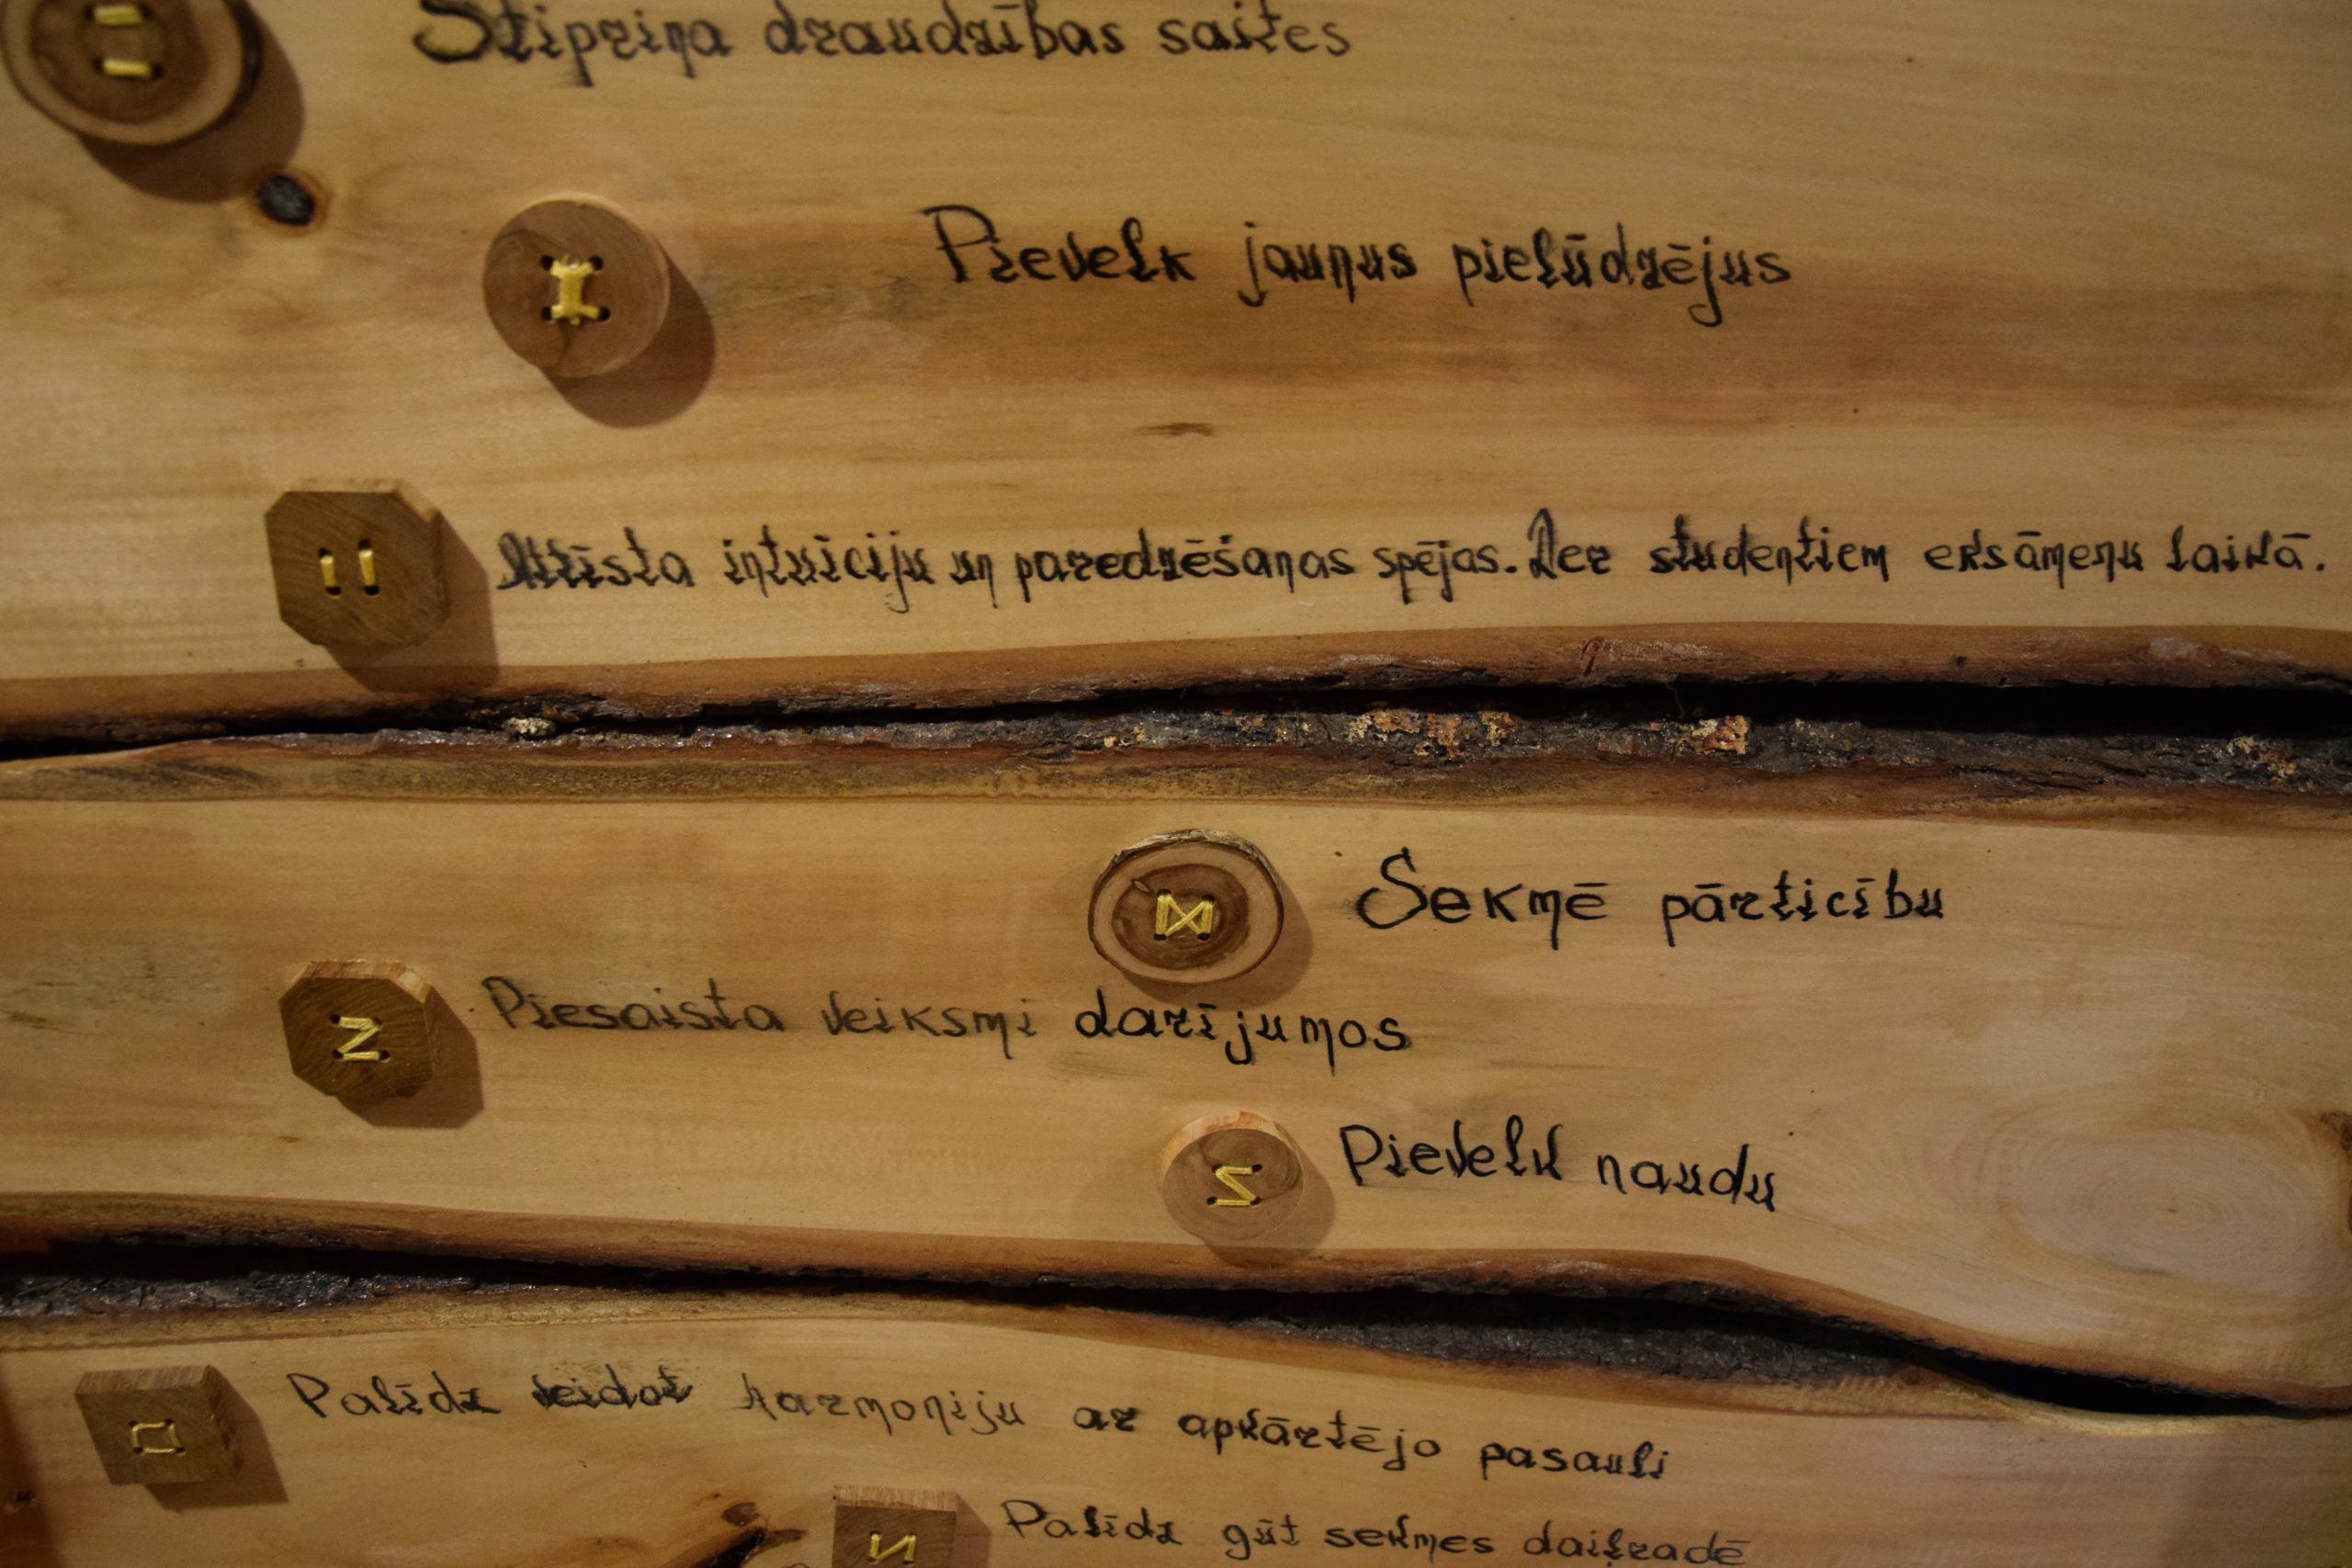 Stipriņa draudzības saites
Pievelk jaunus pielūdzējus
Attīsta intuīciju un paredzēšanas spējas. Der studentiem eksāmenu laikā.
Sekmē pārticību
Piesaista veiksmi darījumos
Pievelk naudu
Palīdz veidot harmoniju ar apkārtējo pasauli
Palīdz gūt sekmes daiļradē